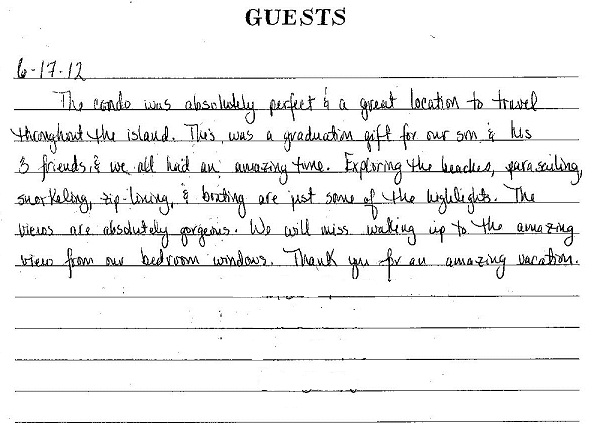 GUESTS
6-17-12
The condo was absolutely perfect & a great location to travel
throughout the island. This was a graduation gift for our son & his
3 friends & we all had an amazing time. Exploring the beaches, parasailing,
snorkeling, zip-lining, & boating are just some of the highlights. The
views are absolutely gorgeous. We will miss waking up to the amazing
view from our bedroom windows. Thank you for an amazing vacation.